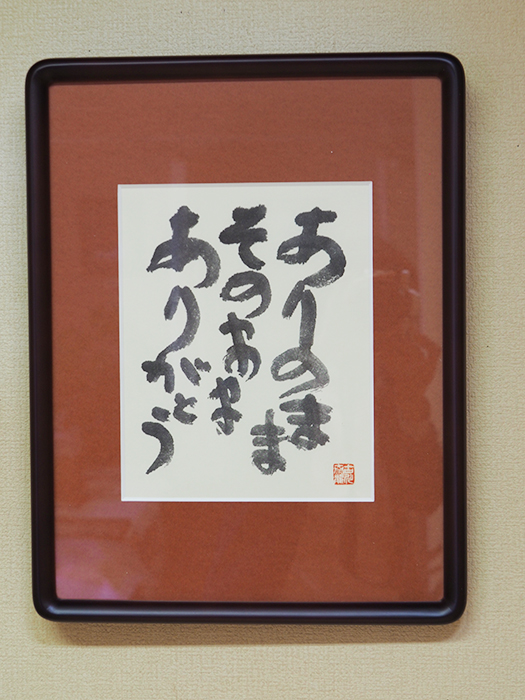 ありのまま
そのまま
ありがとう